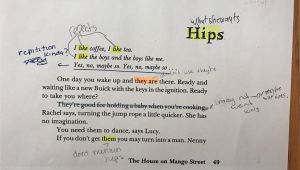 repeats
what she wants
Hips
I like coffee, I like tea.
I like the boys and the boys like me.
Yes, no, maybe so. Yes, no, maybe so . . .
repitition
kinda?
One day you wake up and they are there. Ready and
waiting like a new Buick with the keys in the ignition. Ready
to take you where?
They're good for holding a baby when you're cooking,
Rachel says, turning the jump rope a little quicker. She has
no imagination.
You need them to dance, says Lucy.
If you don't get them you may turn into a man. Nenny
hips
The House on Mango Street 49